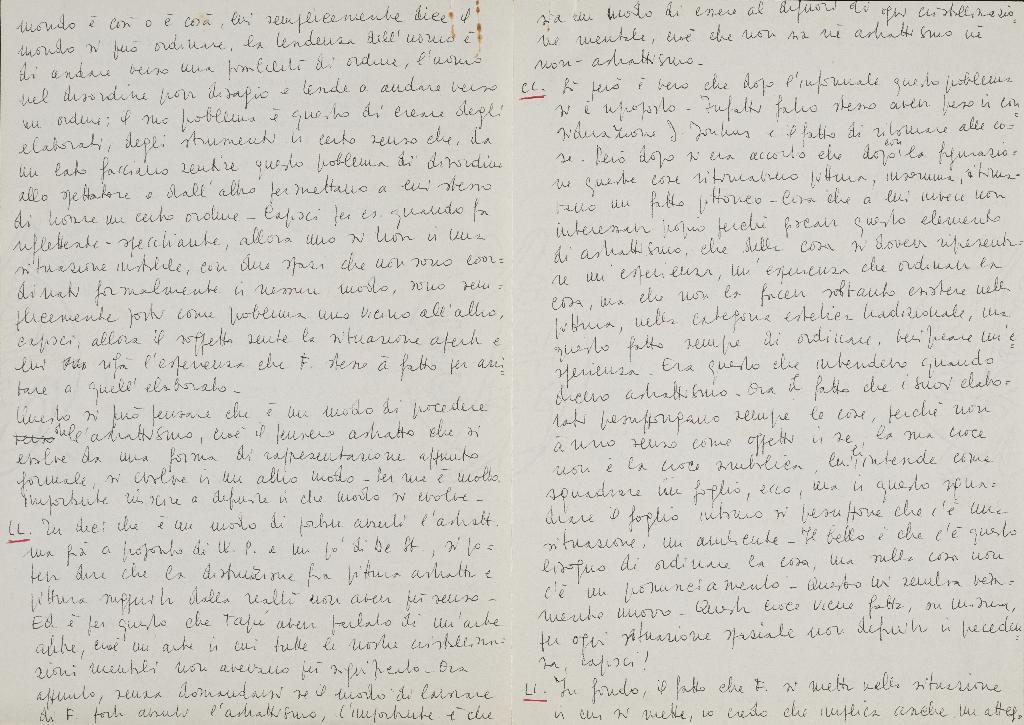 mondo è così o è cosà, lui semplicemente dice il
mondo si può ordinare, la tendenza dell'uomo è
di andare verso una possibilità di ordine, l'uomo
nel disordine prova disagio e tende a andare verso
un ordine; il suo problema è questo di creare degli
elaborati, degli strumenti in certo senso che, da
un lato facciano sentire questo problema di disordine
allo spettatore e dall'altro permettano a lui stesso
di trovare un certo ordine - Capisci per es. quando fa
riflettente-specchiante, allora uno si trova in una
situazione instabile, con due spazi che non sono coor-
dinati formalmente in nessun modo, sono sem-
plicemente posti come problema uno vicino all'altro,
capisci, allora il soggetto sente la situazione aperta e
lui rifà l'esperienza che F. stesso à fatto per arri-
vare a quell'elaborato.
Questo si può pensare che è un modo di procedere
nell'astrattismo, cioè il pensiero astratto che si
evolve da una forma di rappresentazione appunto
formale, si evolve in un altro modo - Per me è molto
importante riuscire a definire in che modo si evolve -
LL. Tu dici che è un modo di portare avanti l'astratt.
ma già a proposito di W. P. e un po' di De St., si po-
teva dire che la distinzione fra pittura astratta e
pittura suggerita dalla realtà non aveva più senso -
Ed è per questo che Tapié aveva parlato di un'arte
altra, cioè un'arte in cui tutte le nostre cristallizza-
zioni mentali non avevano più significato - Ora
appunto, senza domandarsi se il modo di lavorare
di F. porta avanti l'astrattismo, l'importante è che
sia un modo di essere al di fuori di ogni cristallizzazio-
ne mentale, cioè che non sia nè astrattismo nè
non-astrattismo.
CL. Sì però è vero che dopo l'informale questo problema
si è riproposto - Infatti Fabro stesso aveva preso in con
siderazione J. Johns e il fatto di ritornare alle co-
se. Però dopo si era accorto che dopo con la figurazio-
ne queste cose ritornavano pittura, insomma, ritorna-
vano un fatto pittorico - Cosa che a lui invece non
interessava proprio perché giocava questo elemento
di astrattismo, che dalla cosa si doveva ripresenta-
re un'esperienza, un'esperienza che ordinava la
cosa, ma che non la faceva soltanto esistere nella
pittura, nella categoria estetica tradizionale, ma
questo fatto sempre di ordinare, verificare un'e-
sperienza. Era questo che intendevo quando
dicevo astrattismo - Ora il fatto che i suoi elabo-
rati presuppongano sempre le cose, perché non
ànno senso come oggetti in se, la sua croce
non è la croce simbolica, lui l'intende come
squadrare un foglio, ecco, ma in questo squa-
drare il foglio intorno si presuppone che c'è una
situazione, un ambiente - Il bello è che c'è questo
bisogno di ordinare la cosa, ma sulla cosa non
c'è un pronunciamento - Questo mi sembra vera-
mente nuovo - Questa croce viene fatta, su misura,
per ogni situazione spaziale non definita in preceden
za, capisci!
LL. In fondo, il fatto che F. si metta nella situazione
in cui si mette, io credo che implica anche un atteg